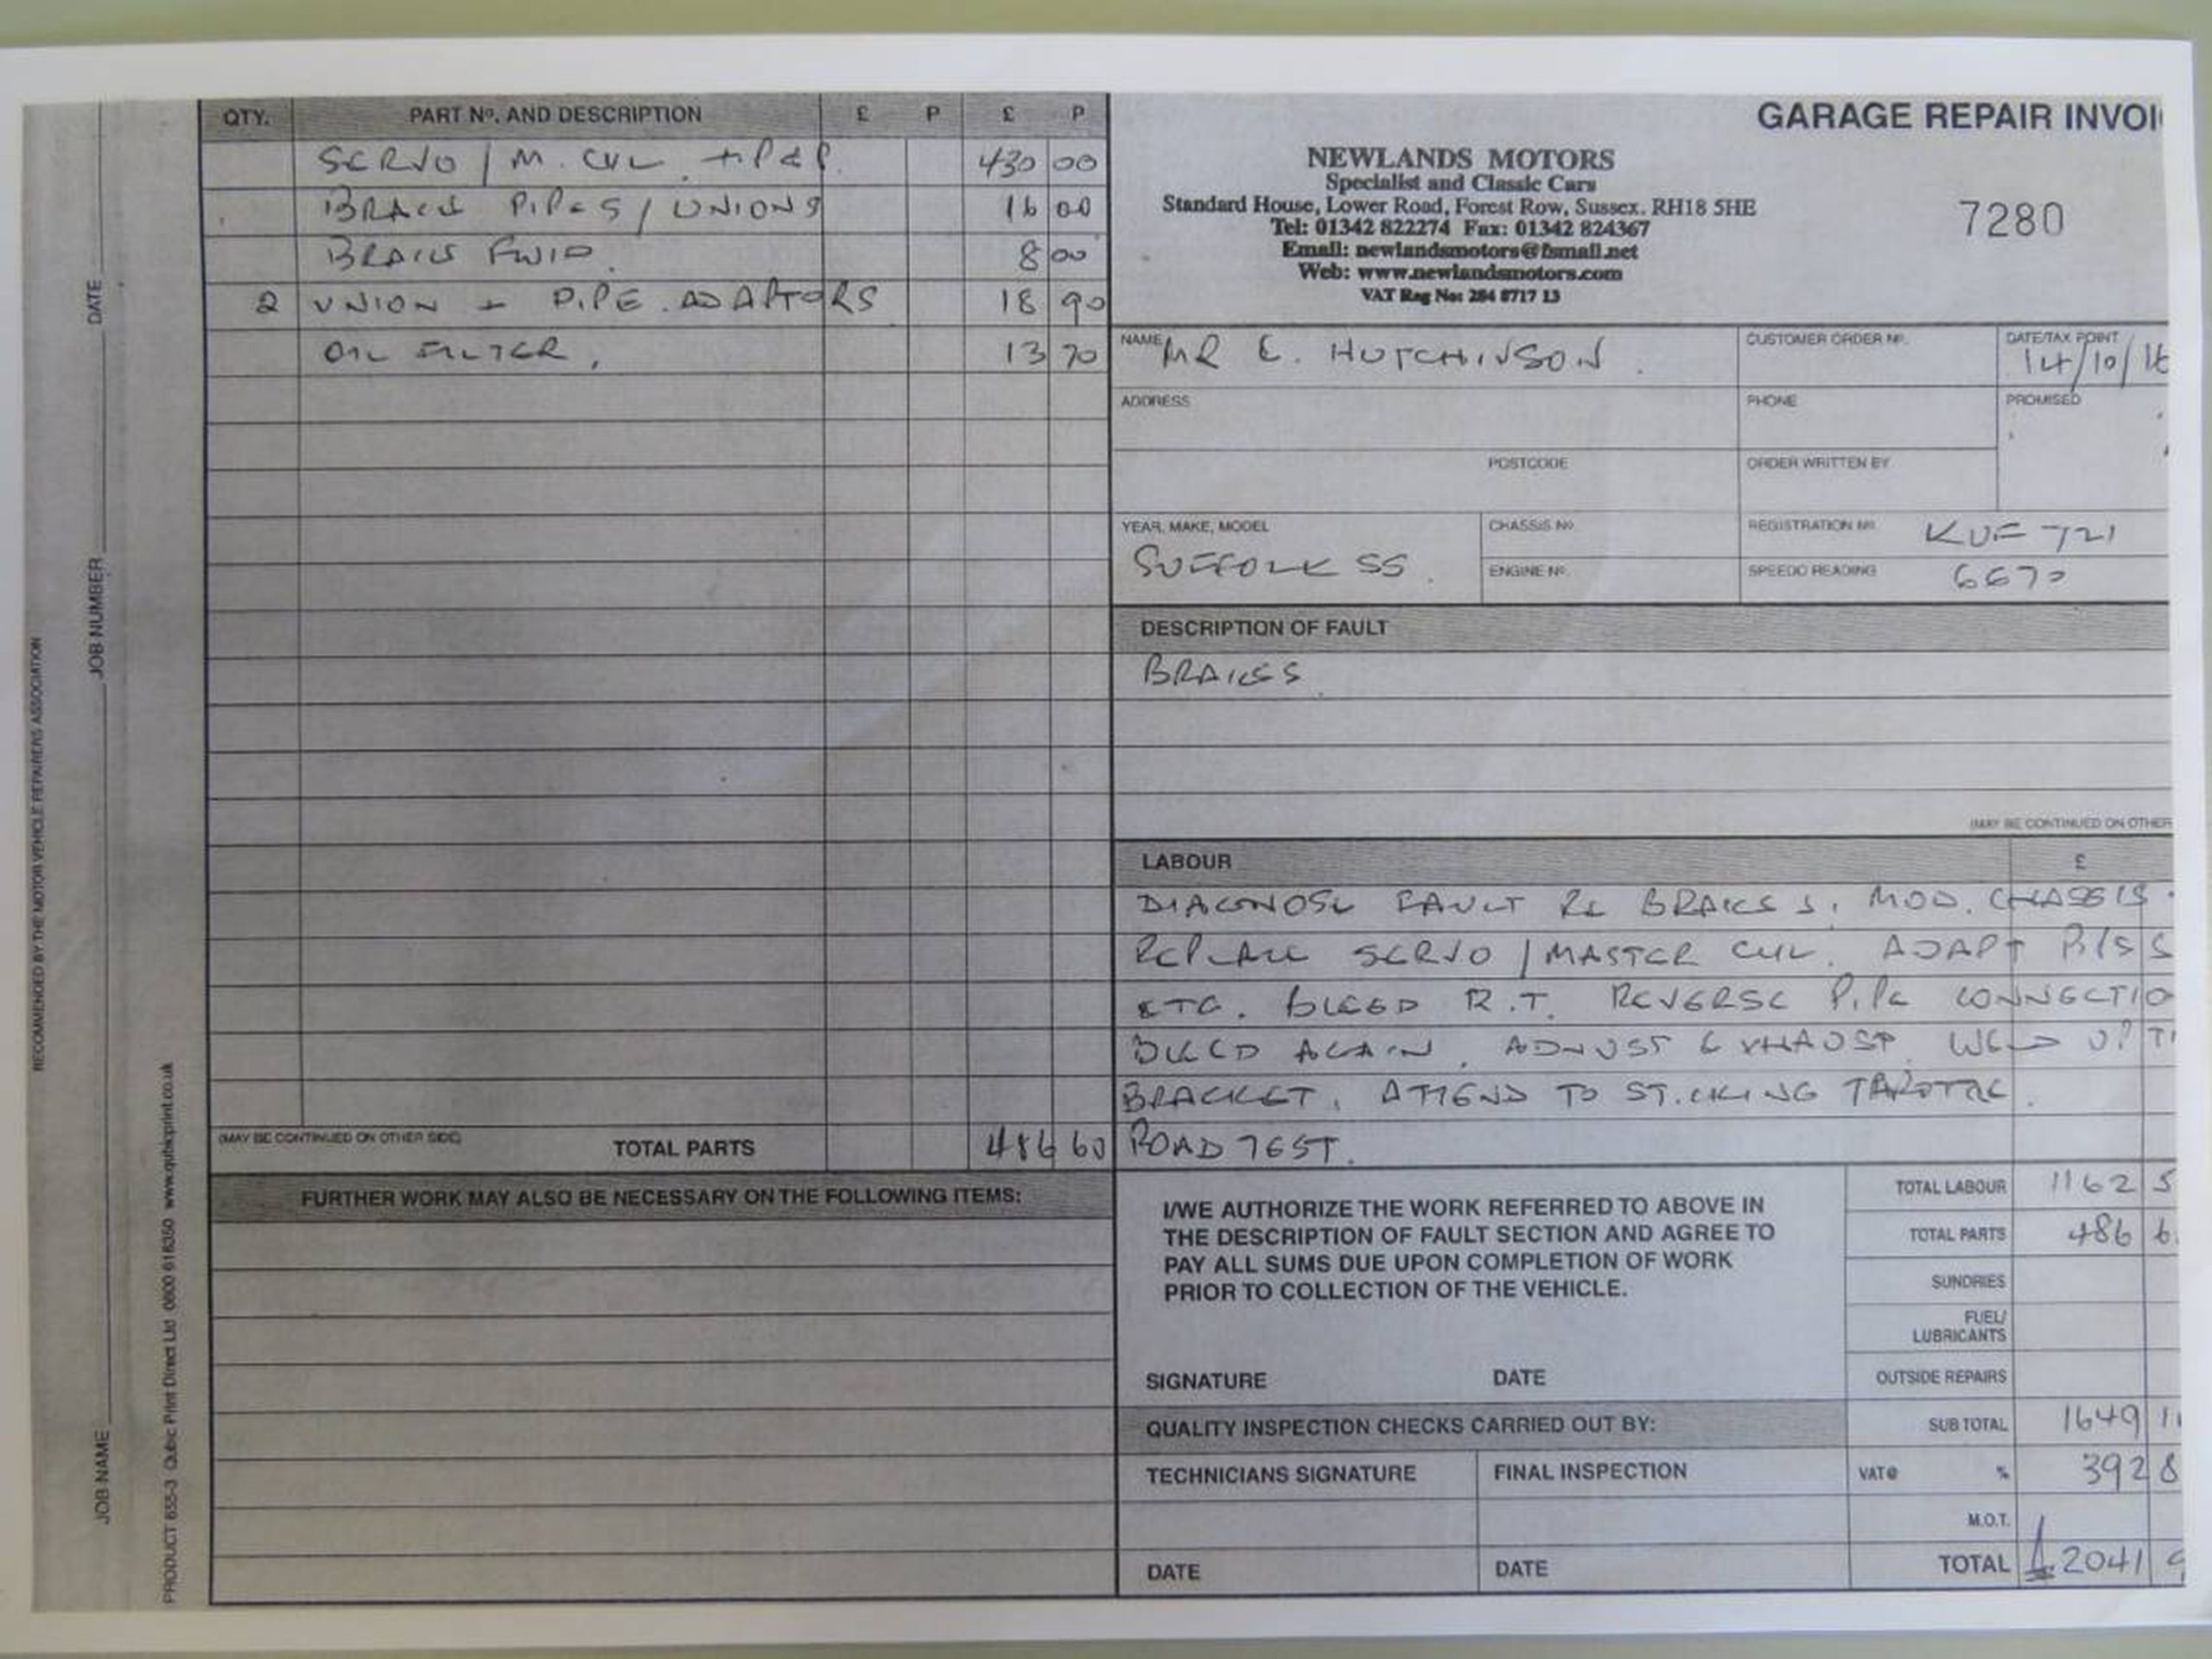 QTY. PART Nº. AND DESCRIPTION £ P £ P
SERVO / M. CYL. + P&P. 430 00
BRAKE PIPES / UNIONS 16 00
BRAKE FLUID. 8 00
2 UNION + PIPE. ADAPTORS 18 90
OIL FILTER. 13 70
(MAY BE CONTINUED ON OTHER SIDE) TOTAL PARTS 486 60
FURTHER WORK MAY ALSO BE NECESSARY ON THE FOLLOWING ITEMS:
GARAGE REPAIR INVOI
NEWLANDS MOTORS
Specialist and Classic Cars
Standard House, Lower Road, Forest Row, Sussex. RH18 5HE
Tel: 01342 822274 Fax: 01342 824367
Email: newlandsmotors@fsmail.net
Web: www.newlandsmotors.com
VAT Reg No: 284 8717 13
7280
NAME MR E. HUTCHINSON.
CUSTOMER ORDER Nº.
DATE/TAX POINT
14/10/16
ADDRESS
PHONE
PROMISED
POSTCODE
ORDER WRITTEN BY
YEAR, MAKE, MODEL
SUFFOLK SS.
CHASSIS Nº.
ENGINE Nº.
REGISTRATION Nº. KUF 721
SPEEDO READING 6670
DESCRIPTION OF FAULT
BRAKES
(MAY BE CONTINUED ON OTHER
LABOUR £
DIAGNOSE FAULT RE BRAKES. MOD. CHASSIS.
REPLACE SERVO / MASTER CYL. ADAPT
ETC. BLEED R.T. REVERSE PIPE CONNECTIO
BLEED AGAIN. ADJUST EXHAUST. WELD UP
BRACKET. ATTEND TO STICKING
ROAD TEST.
I/WE AUTHORIZE THE WORK REFERRED TO ABOVE IN
THE DESCRIPTION OF FAULT SECTION AND AGREE TO
PAY ALL SUMS DUE UPON COMPLETION OF WORK
PRIOR TO COLLECTION OF THE VEHICLE.
SIGNATURE DATE
QUALITY INSPECTION CHECKS CARRIED OUT BY:
TECHNICIANS SIGNATURE FINAL INSPECTION
DATE DATE
TOTAL LABOUR 1162 5
TOTAL PARTS 486 6
SUNDRIES
FUEL/
LUBRICANTS
OUTSIDE REPAIRS
SUB TOTAL 1649 1
VAT@ % 392 8
M.O.T.
TOTAL £2041 9
RECOMMENDED BY THE MOTOR VEHICLE REPAIRERS ASSOCIATION
JOB NAME JOB NUMBER DATE
PRODUCT 655-3 Qubic Print Direct Ltd 0800 616350 www.qubicprint.co.uk